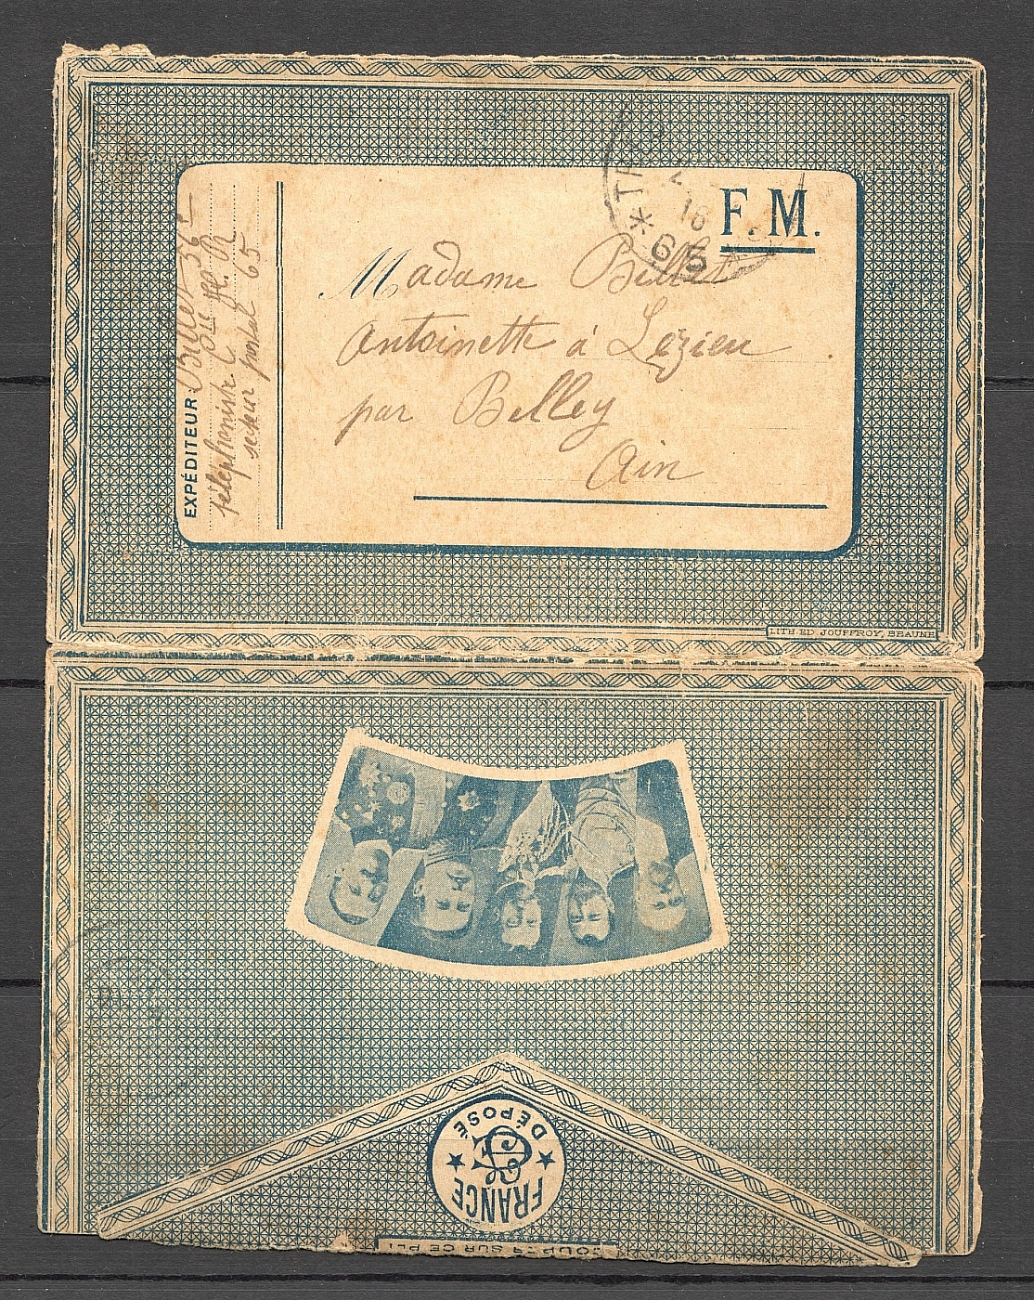 F.M.
TR
16
* 65
Madame Billet
Antoinette à Lézieu
par Belley
Ain
EXPÉDITEUR: Billet 56e
téléphoniste Cie H. R
secteur postal 65
LITH ED. JOUFFROY, BEAUNE
DÉPOSÉ
FRANCE
SUR CE PLI